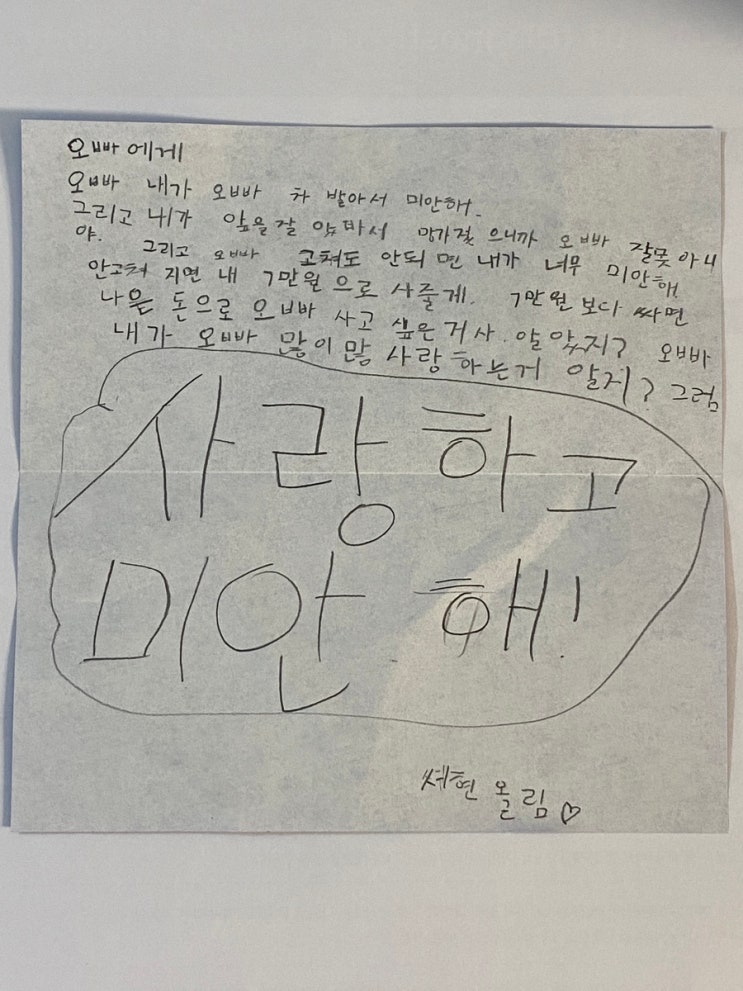 오빠에게
오빠 내가 오빠 차 발아서 미안해.
그리고 내가 앞을잘 않바서 망가졌으니까 오빠 잘못아니
야. 그리고 오빠 고쳐도 안되면 내가 너무 미안해
안고쳐 지면 내 7만원으로 사줄게. 7만원보다 싸면
나은 돈으로 오빠 사고 싶은거사. 알았지? 오빠
내가 오빠 많이많 사랑하는거 알지? 그럼
사랑하고
미안해!
쎄현 올림♡